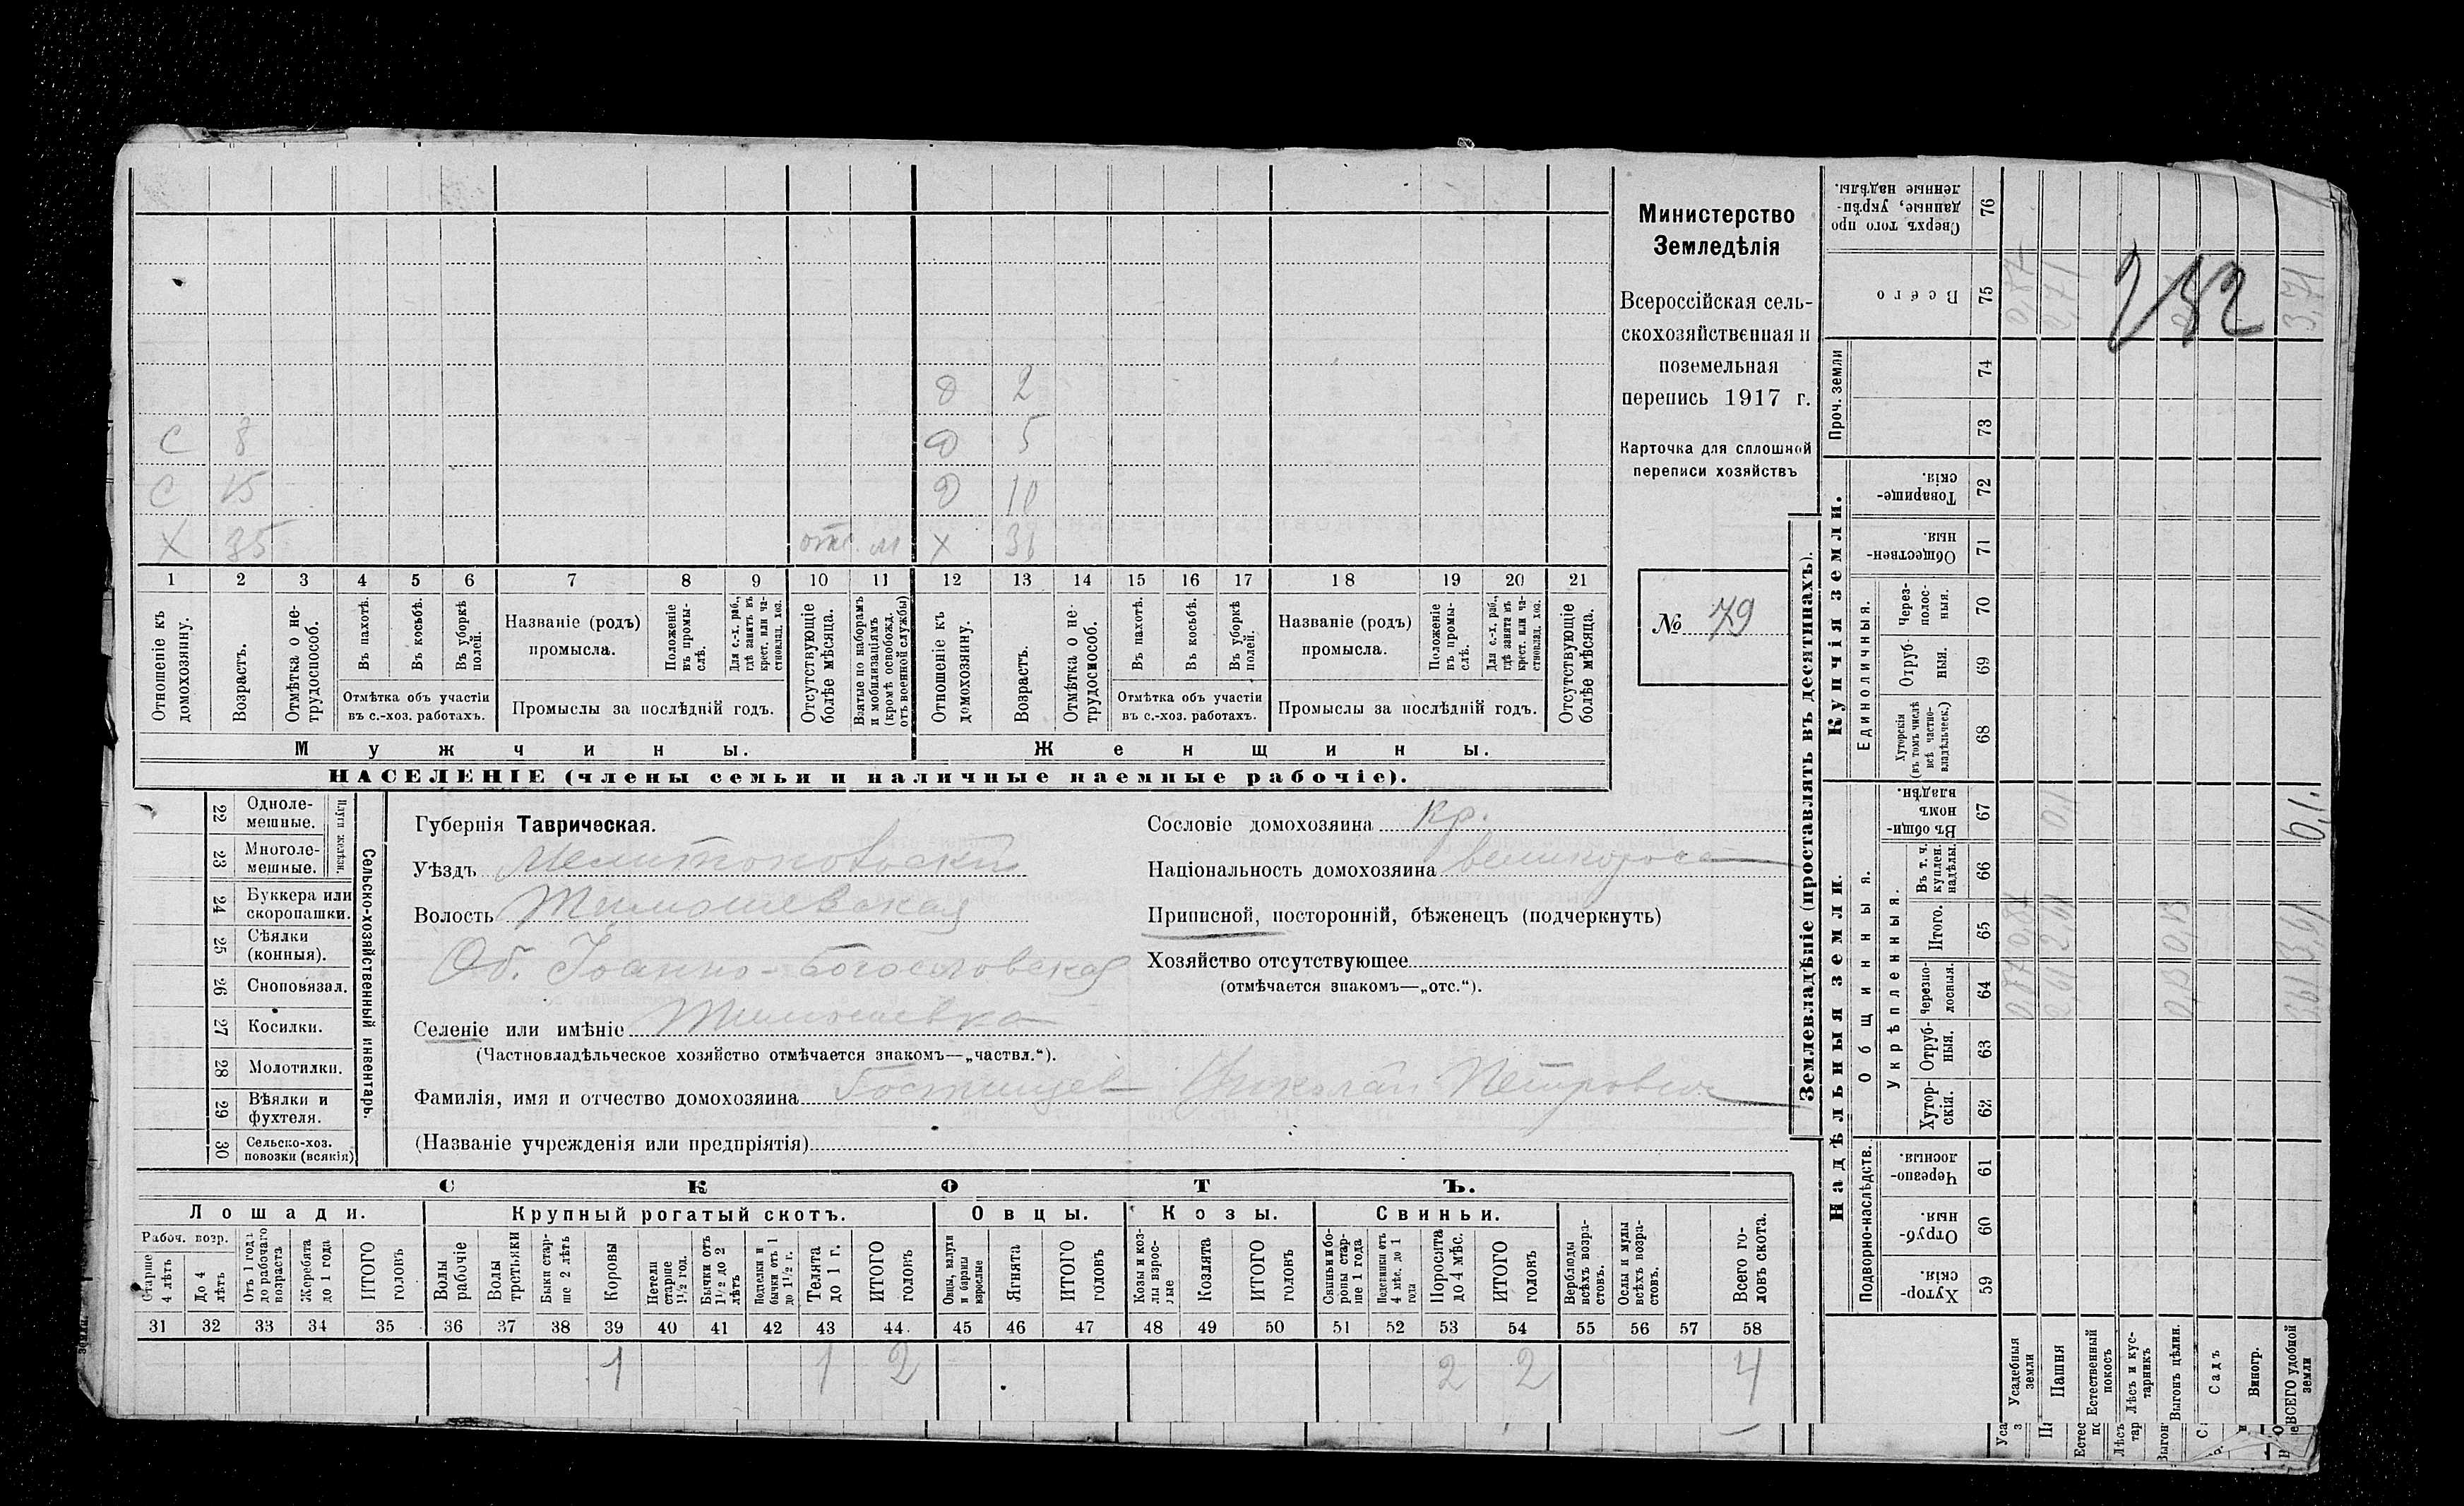 Министерство
Земледѣлія
Всероссійская сель-
скохозяйственная и
поземельная
перепись 1917 г.
Карточка для сплошной
переписи хозяйствъ
№ 79
282
Д 2
С 8 Д 5
С 15 Д 10
Х 35 отс. м Х 31
1 2 3 4 5 6 7 8 9 10 11 12 13 14 15 16 17 18 19 20 21
Отношеніе къ домохозяину.
Возрастъ.
Отмѣтка о не-трудоспособ.
Въ пахотѣ.
Въ косьбѣ.
Въ уборкѣ полей.
Отмѣтка объ участіи
въ с.-хоз. работахъ.
Названіе (родъ)
промысла.
Положеніе въ промы-слѣ.
Для с.-х. раб., гдѣ занятъ въ крест. или ча-стновлад. хоз.
Промыслы за послѣдній годъ.
Отсутствующіе болѣе мѣсяца.
Взятые по наборамъ и мобилизаціямъ (кромѣ освобожд. отъ военной службы)
Отношеніе къ домохозяину.
Возрастъ.
Отмѣтка о не-трудоспособ.
Въ пахотѣ.
Въ косьбѣ.
Въ уборкѣ полей.
Отмѣтка объ участіи
въ с.-хоз. работахъ.
Названіе (родъ)
промысла.
Положеніе въ промы-слѣ.
Для с.-х. раб., гдѣ занята въ крест. или ча-стновлад. хоз.
Промыслы за послѣдній годъ.
Отсутствующіе болѣе мѣсяца.
Мужчины. Женщины.
НАСЕЛЕНІЕ (члены семьи и наличные наемные рабочіе).
Сельско-хозяйственный инвентарь.
Плуги желѣзн.
22 Одноле-мешные.
23 Многоле-мешные.
24 Буккера или скоропашки.
25 Сѣялки (конныя).
26 Сноповязал.
27 Косилки.
28 Молотилки.
29 Вѣялки и фухтеля.
30 Сельско-хоз. повозки (всякія)
Губернія Таврическая.
Уѣздъ Мелитопольскій
Волость Тимошевская
Об. Іоанно-Богословская
Селеніе или имѣніе Тимошевка
(Частновладѣльческое хозяйство отмѣчается знакомъ—„частвл.“).
Фамилія, имя и отчество домохозяина Гостищев Николай Петрович
(Названіе учрежденія или предпріятія)
Сословіе домохозяина кр.
Національность домохозяина великоросс
Приписной, посторонній, бѣженецъ (подчеркнуть)
Хозяйство отсутствующее
(отмѣчается знакомъ—„отс.“).
СКОТЪ.
Лошади. Крупный рогатый скотъ. Овцы. Козы. Свиньи.
Рабоч. возр.
Старше 4 лѣтъ
До 4 лѣтъ
Отъ 1 года до рабочаго возраста
Жеребята до 1 года
ИТОГО головъ
Волы рабочіе
Волы третьяки
Быки стар-ше 2 лѣтъ
Коровы
Нетели старше 1½ год.
Бычки отъ 1½ до 2 лѣтъ
Подтелки и бычки отъ 1 до 1½ г.
Телята до 1 г.
ИТОГО головъ
Овцы, валухи и бараны взрослые
Ягнята
ИТОГО головъ
Козы и коз-лы взрос-лые
Козлята
ИТОГО головъ
Свиньи и бо-ровы стар-ше 1 года
Подсвинки отъ 4 мѣс. до 1 года
Поросята до 4 мѣс.
ИТОГО головъ
Верблюды всѣхъ возра-стовъ.
Ослы и мулы всѣхъ возра-стовъ.
Всего го-ловъ скота.
31 32 33 34 35 36 37 38 39 40 41 42 43 44 45 46 47 48 49 50 51 52 53 54 55 56 57 58
1 1 2 2 2 4
Землевладѣніе (проставлять въ десятинахъ).
Надѣльныя земли. Купчія земли.
Подворно-наслѣдств.
Общинныя.
Укрѣпленныя.
Единоличныя.
Проч. земли
Хутор-скія. 59
Отруб-ныя. 60
Черезпо-лосныя. 61
Хутор-скія. 62
Отруб-ныя. 63
Черезпо-лосныя. 64
Итого. 65
Въ т. ч. куплен. надѣлы. 66
Въ общин-номъ владѣн. 67
Хуторскія (въ томъ числѣ всѣ частно-владѣльческ.) 68
Отруб-ныя. 69
Через-полос-ныя. 70
Обществен-ныя. 71
Товарище-скія. 72
73
74
Всего 75
Сверхъ того про-данные, укрѣп-ленные надѣлы. 76
Усадебныя земли 0,87 0,87 0,87
Пашня 2,61 2,61 0,1 2,71
Естественный покосъ
Лѣсъ и кус-тарникъ
Выгонъ цѣлин. 0,13 0,13
Садъ
Виногр.
ВСЕГО удобной земли 3,61 3,61 0,1 3,71